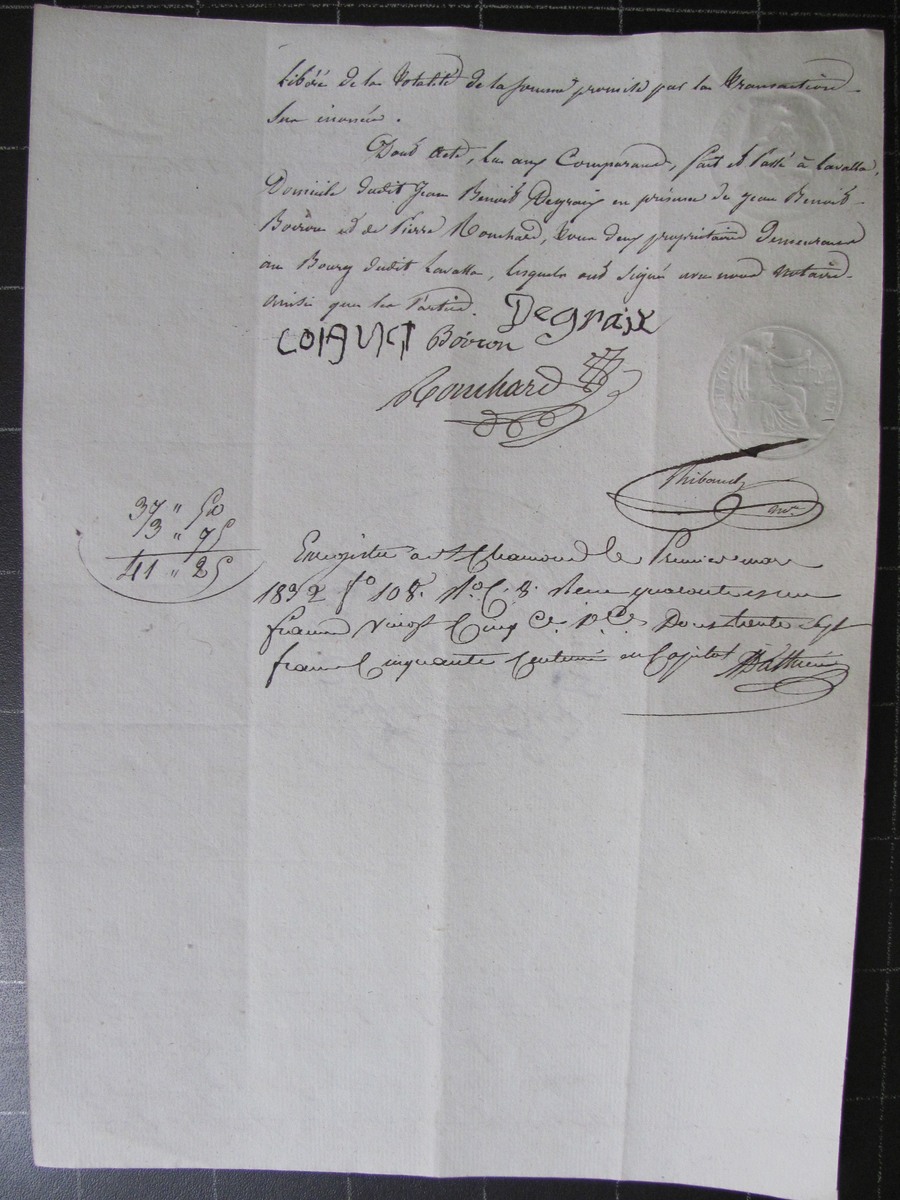 libéré de la totalité de la somme promise par la transaction
sus énoncée.
Dont acte, lu aux Comparans, fait et Passé à Lavalla,
Domicile dudit Jean Benoit Degraix en présence de Jean Benoit
Boiron et de Pierre Rouchard, tous deux propriétaires Demeurans
au Bourg dudit Lavalla, lesquels ont signé avec nous Notaire
ainsi que les Parties. Degraix
Boiron
Rouchard
Thibaud
Not.re
37 " 50
3 " 75
41 " 25
Enregistré à St Chamond le Premier mars
1832 f° 108. R° C. 8. Reçu quarante un
francs Vingt Cinq C.es P. C.e Dous trente sept
francs Cinquante Centimes